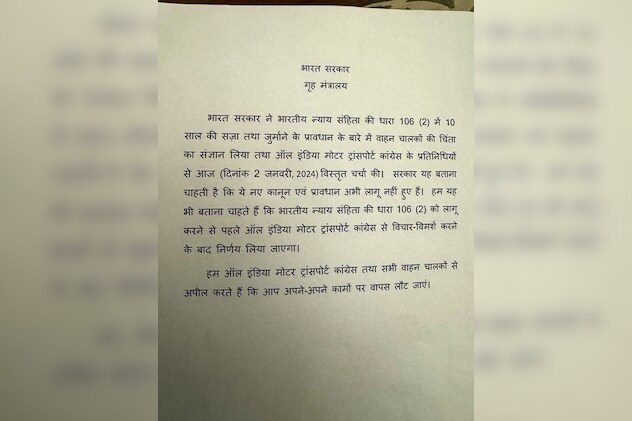 भारत सरकार
गृह मंत्रालय
भारत सरकार ने भारतीय न्याय संहिता की धारा 106 (2) में 10
साल की सज़ा तथा जुर्माने के प्रावधान के बारे में वाहन चालकों की चिंता
का संज्ञान लिया तथा ऑल इंडिया मोटर ट्रांसपोर्ट कांग्रेस के प्रतिनिधियों
से आज (दिनांक 2 जनवरी, 2024) विस्तृत चर्चा की। सरकार यह बताना
चाहती है कि ये नए कानून एवं प्रावधान अभी लागू नहीं हुए हैं। हम यह
भी बताना चाहते हैं कि भारतीय न्याय संहिता की धारा 106 (2) को लागू
करने से पहले ऑल इंडिया मोटर ट्रांसपोर्ट कांग्रेस से विचार-विमर्श करने
के बाद निर्णय लिया जाएगा।
हम ऑल इंडिया मोटर ट्रांसपोर्ट कांग्रेस तथा सभी वाहन चालकों से
अपील करते हैं कि आप अपने-अपने कामों पर वापस लौट जाएं।